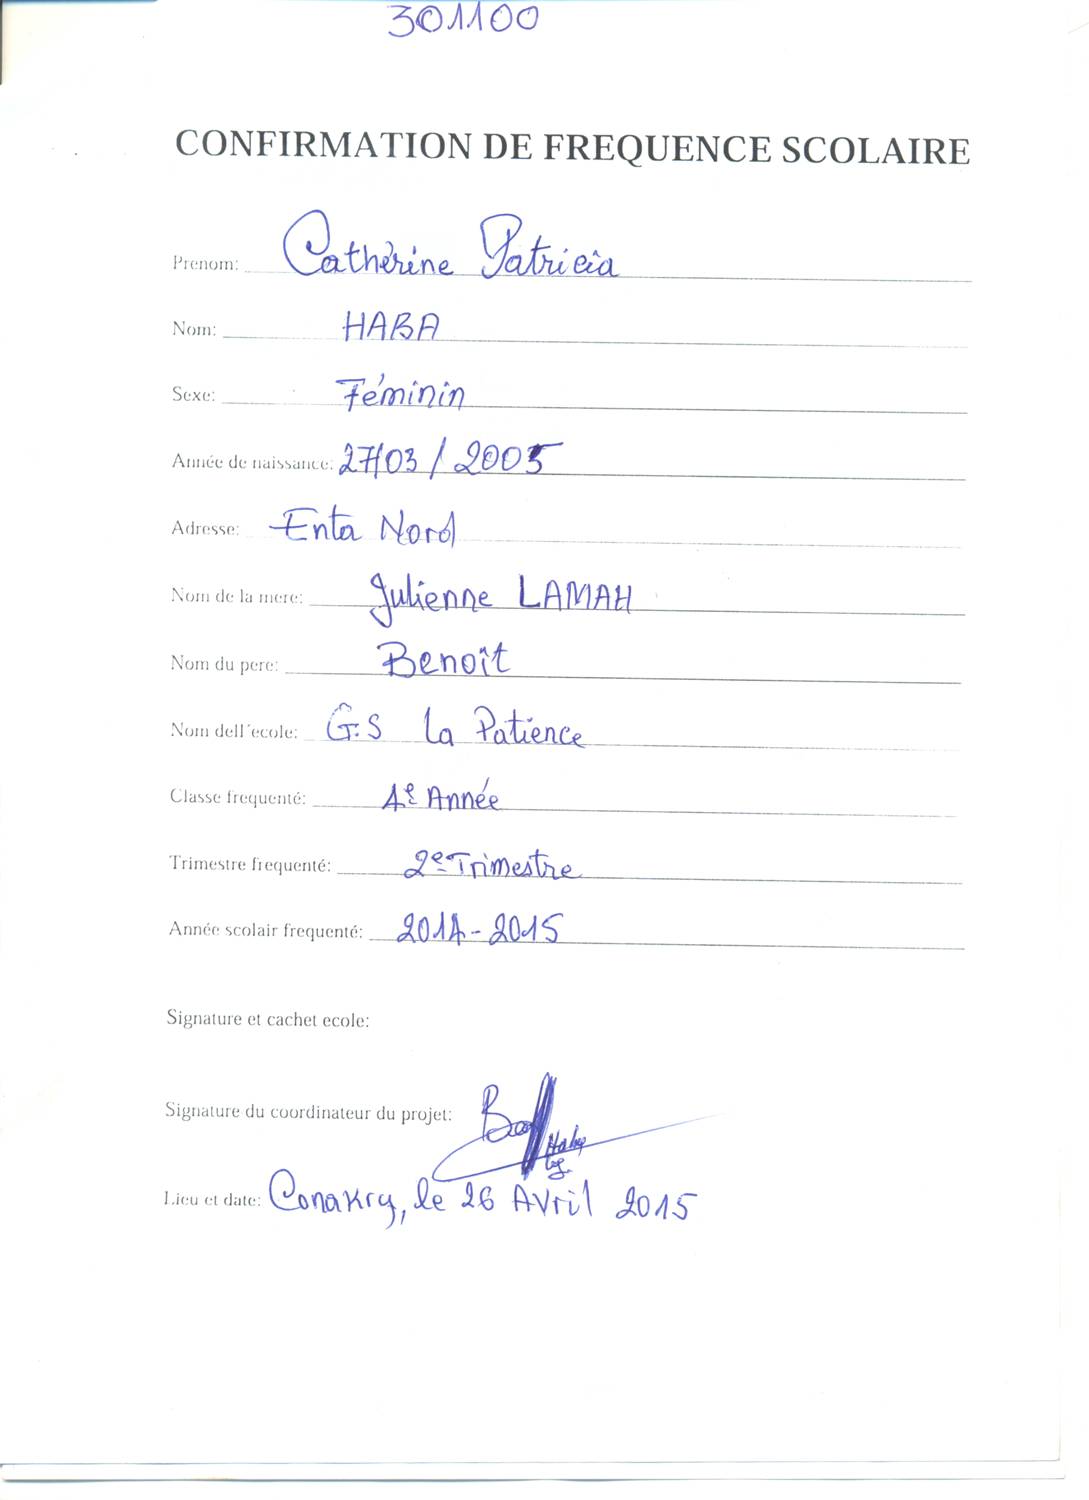 301100
CONFIRMATION DE FREQUENCE SCOLAIRE
Prenom: Cathèrine Patricia
Nom: HABA
Sexe: Féminin
Année de naissance: 27/03/2005
Adresse: Enta Nord
Nom de la mere: Julienne LAMAH
Nom du pere: Benoît
Nom dell´ecole: G.S La Patience
Classe frequenté: 4e Année
Trimestre frequenté: 2e Trimestre
Année scolair frequenté: 2014-2015
Signature et cachet ecole:
Signature du coordinateur du projet:
Lieu et date: Conakry, le 26 Avril 2015